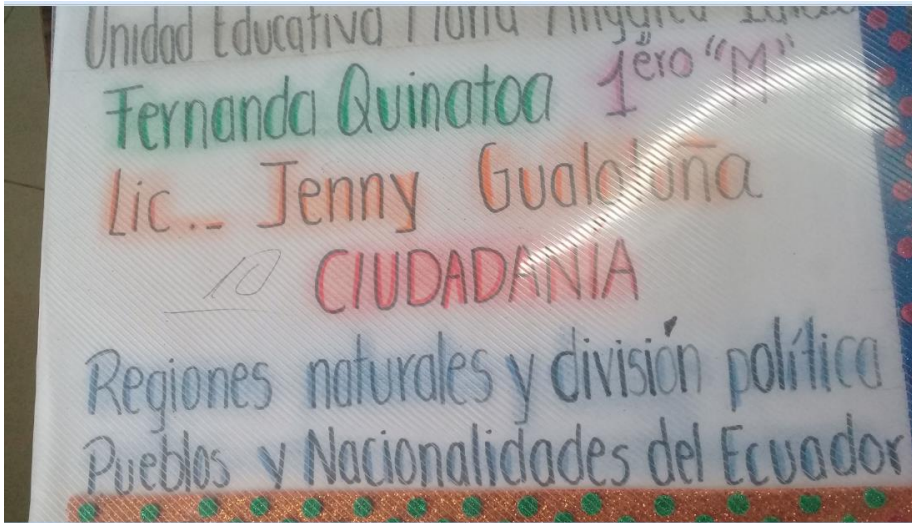 Unidad Educativa María Angélica
Fernanda Quinatoa 1ero "M"
Lic... Jenny Gualotuña
10 CIUDADANIA
Regiones naturales y división política
Pueblos y Nacionalidades del Ecuador